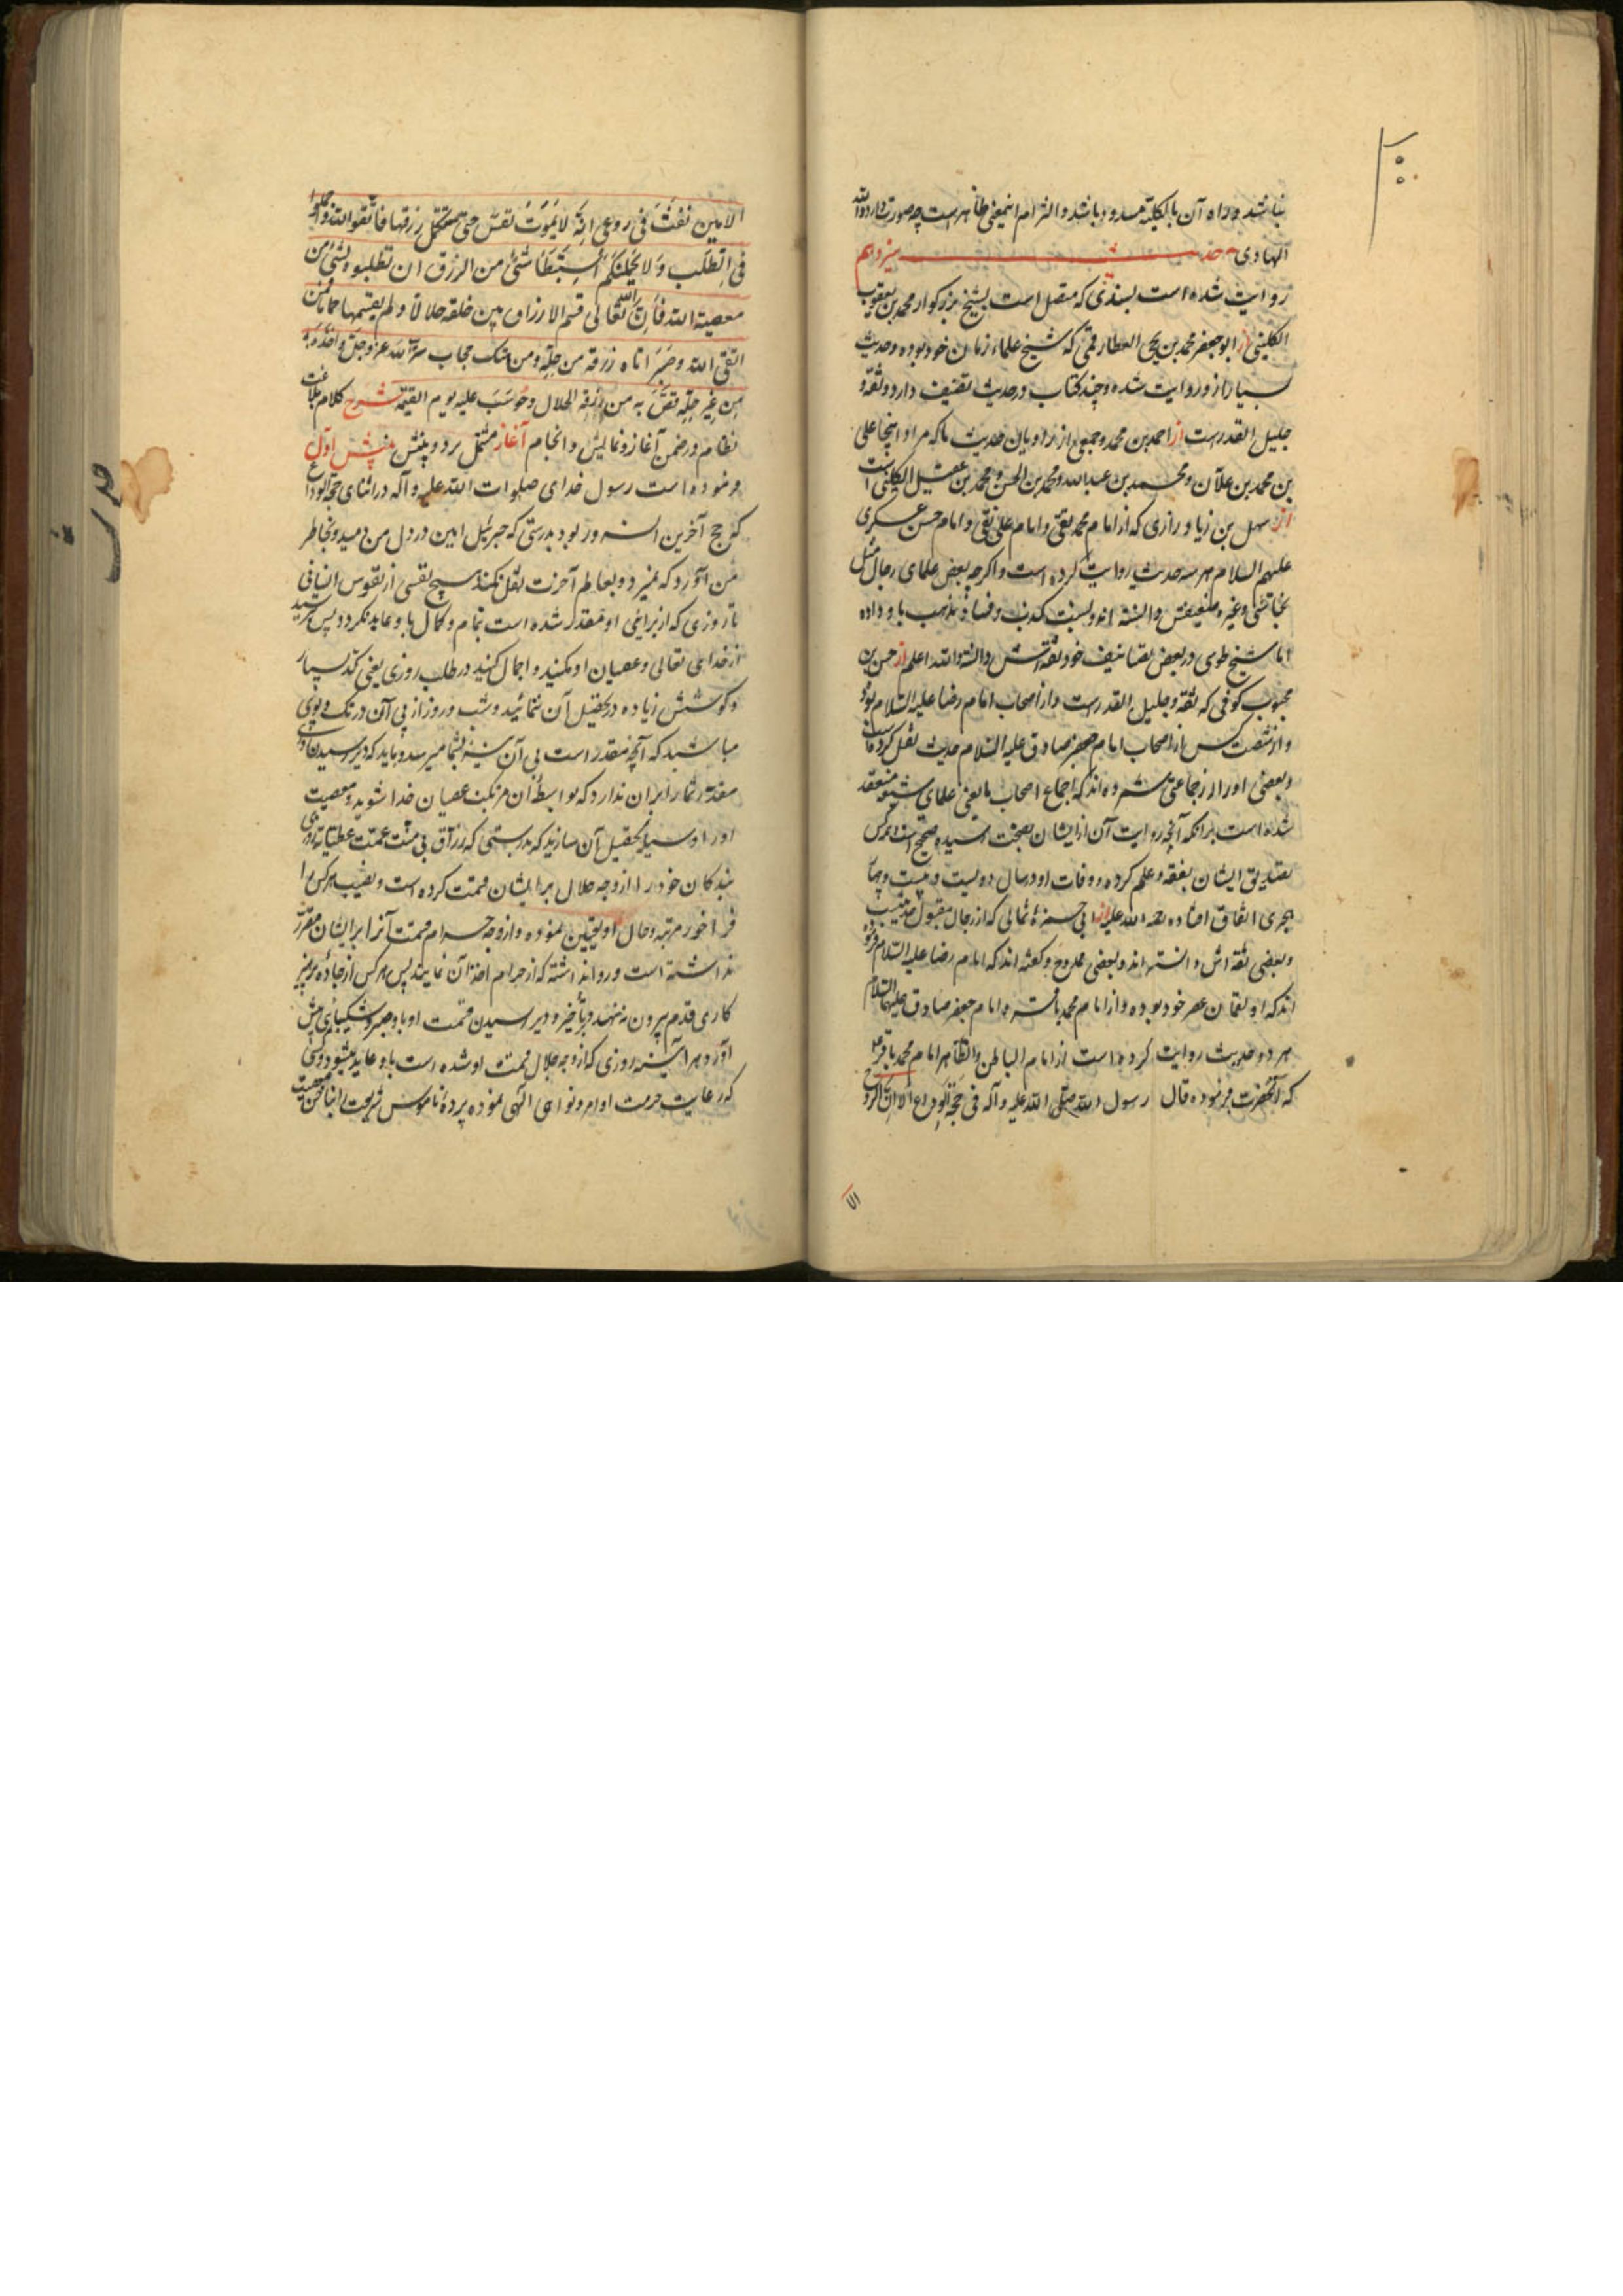 نباشد و راه آن بالکلیة مسدود باشد و التزام اینمعنی ظاهر است چه صورت دارد والله
الهادی حدیث سیزدهم
روایت شده است بسندی که متصل است بشیخ بزرکوار محمد بن یعقوب
الکلینی از ابو جعفر محمد بن یحیی العطار قمی که شیخ علماء زمان خود بوده و حدیث
بسیار از و روایت شده و چند کتاب در حدیث تصنیف دارد و ثقه و
جلیل القدرست از احمد بن محمد و جمعی از راویان حدیث ما که مراد اینجا علی
بن محمد بن علان و محمد بن عبدالله و محمد بن الحسن و محمد بن عقیل الکلینی است
از سهل بن زیاد رازی که از امام محمد تقی و امام علی نقی و امام حسن عسکری
علیهم السلام هر سه حدیث روایت کرده است و اکرچه بعض علمای رجال مثل
نجاشی و غیره ضعیفش دانسته اند و نسبت کذب و فساد مذهب باو داده
اما شیخ طوسی در بعض تصانیف خود ثقه اش دانسته والله اعلم از حسن بن
محبوب کوفی که ثقه و جلیل القدرست و از اصحاب امام رضا علیه السلام بوده
و از شصت کس از اصحاب امام جعفر صادق علیه السلام حدیث نقل کرده است
و بعضی او را از جماعتی شمرده اند که اجماع اصحاب ما یعنی علمای شیعه منعقد
شده است برانکه آنچه روایت آن از ایشان بصحت رسیده صحیح است
تصدیق ایشان بفقه و علم کرده و وفات او در سال دویست و بیست و چهار
هجری اتفاق افتاده رحمة الله علیه از ابی حمزهٔ ثمالی که از رجال مقبول
و بعضی ثقه اش دانسته اند و بعضی ممدوح و کفته اند که امام رضا علیه السلام فرموده
اند که او لقمان عصر خود بوده و از امام محمد باقر و امام جعفر صادق علیهما السلام
هر دو حدیث روایت کرده است از امام الباطن و الظاهر امام محمد باقر ع
که آنحضرت فرموده قال رسول الله صلی الله علیه و آله فی حجة الوداع الا ان الروح
الا
الامین نفث فی روعی انه لا یموت نفس حتی تستکمل رزقها فاتقوا الله و اجملوا
فی الطلب و لا یحملنکم استبطاء شئ من الرزق ان تطلبوه بشئ من
معصیة الله فان الله تعالی قسم الارزاق بین خلقه حلالا و لم یقسمها حراما فمن
اتقی الله و صبر اتاه رزقه من حله و من هتک حجاب ستر الله عز و جل و اخذه
من غیر حله قص به من رزقه الحلال و حوسب علیه یوم القیمة شرح کلام بلاغت
نظام در ضمن آغاز و نمایش و انجام آغاز مشتمل بر دو بینش بینش اول
فرموده است رسول خدای صلوات الله علیه و آله در اثنای حجة الوداع
که حج آخرین انسرور بود بدرستی که جبرئیل امین در دل من دمید و بخاطر
من آورد که نمیرد و بعالم آخرت نقل نکند هیچ نفسی از نفوس انسانی
تا روزی که از برای او مقدر شده است بتمام و کمال باو عاید نکردد پس بترسید
از خدای تعالی و عصیان او مکنید و اجمال کنید در طلب روزی یعنی کد بسیار
و کوشش زیاده در تحصیل آن ننمائید و شب و روز از پی آن در تک و پوی
مباشید که آنچه مقدر است بی آن نیز بشما میرسد و باید که دیر رسیدن
مقدر شما را بران ندارد که بواسطهٔ آن مرتکب عصیان خدا شوید و معصیت
او را وسیلهٔ تحصیل آن سازید که بدرستی که رزاق بی منت عمت عطیاته روزی
بندکان خود را از وجه حلال برایشان قسمت کرده است و نصیب هر کس را
فراخور مرتبه و حال او تعیین نموده و از وجه حرام قسمت آنرا برایشان مقرر
نداشته است و روا نداشته که از حرام اخذ آن نمایند پس هر کس از جادهٔ پرهیز
کاری قدم بیرون ننهد و بتأخیر و دیر رسیدن قسمت او باو صبر و شکیبائی پیش
آورد هر آینه روزی که از وجه حلال قسمت او شده است باو عاید میشود و کسی
که رعایت حرمت اوامر و نواهی الهی ننموده پردهٔ ناموس شریعت را